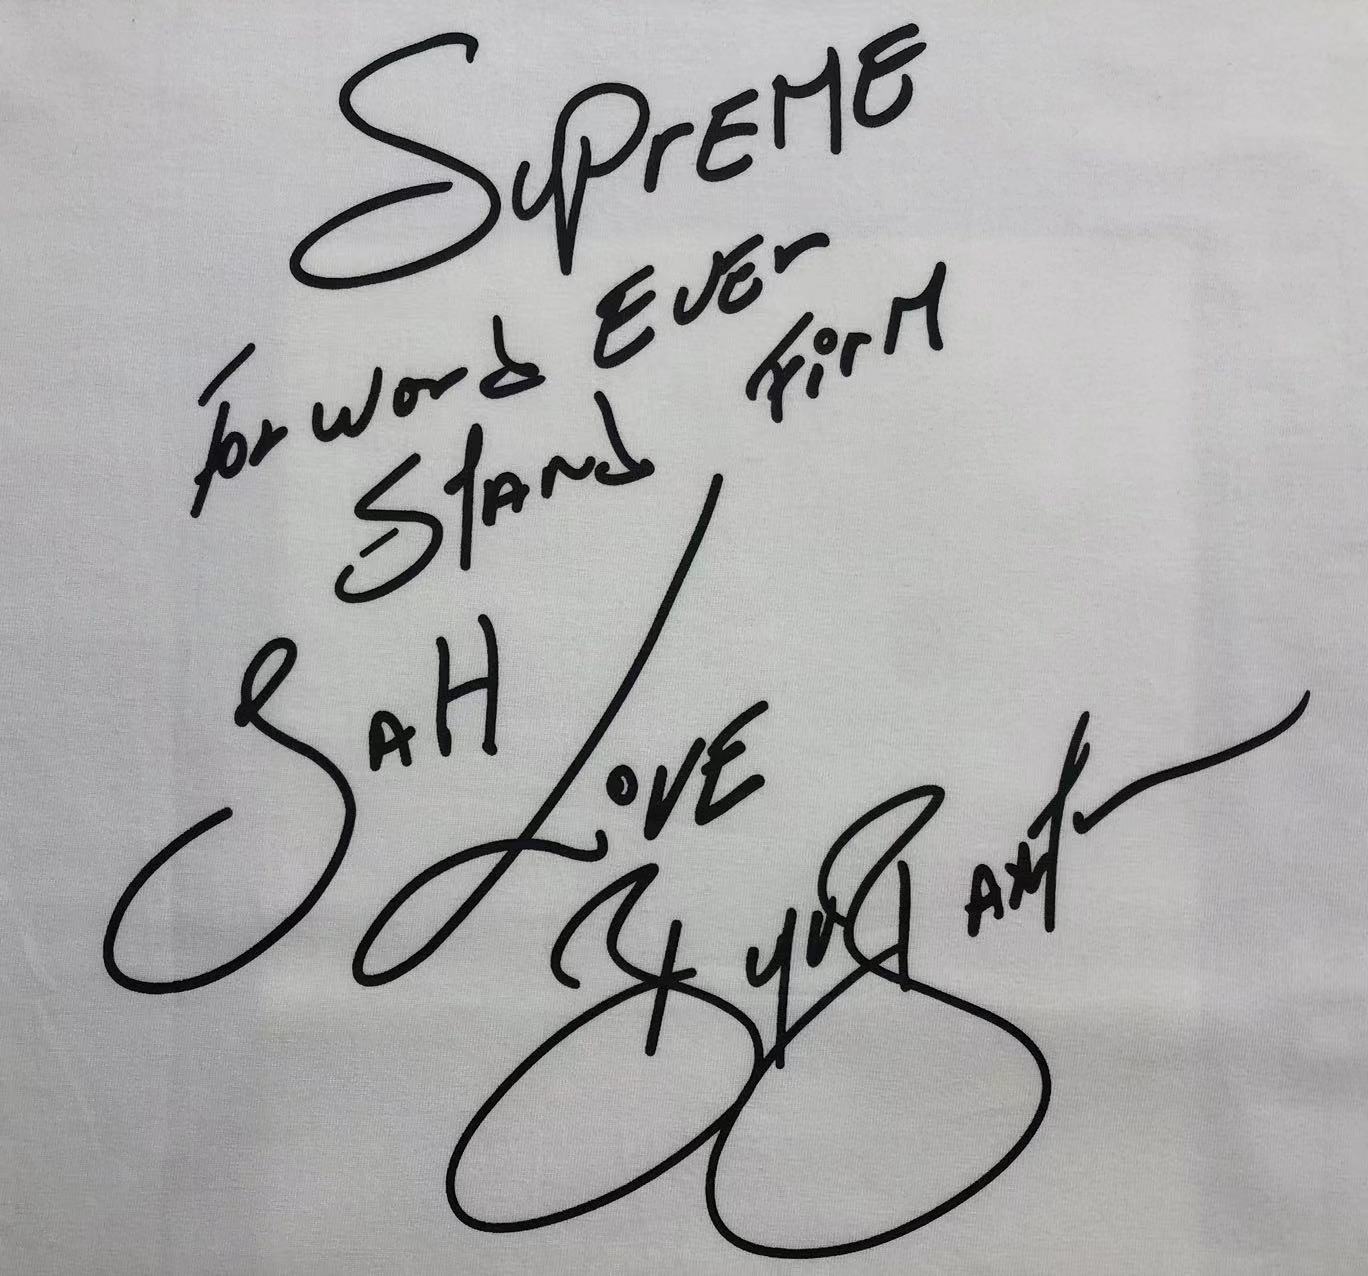 SuPrEME
Forword EVEr
StANd FirM
JAH LOVE
Buju Banton